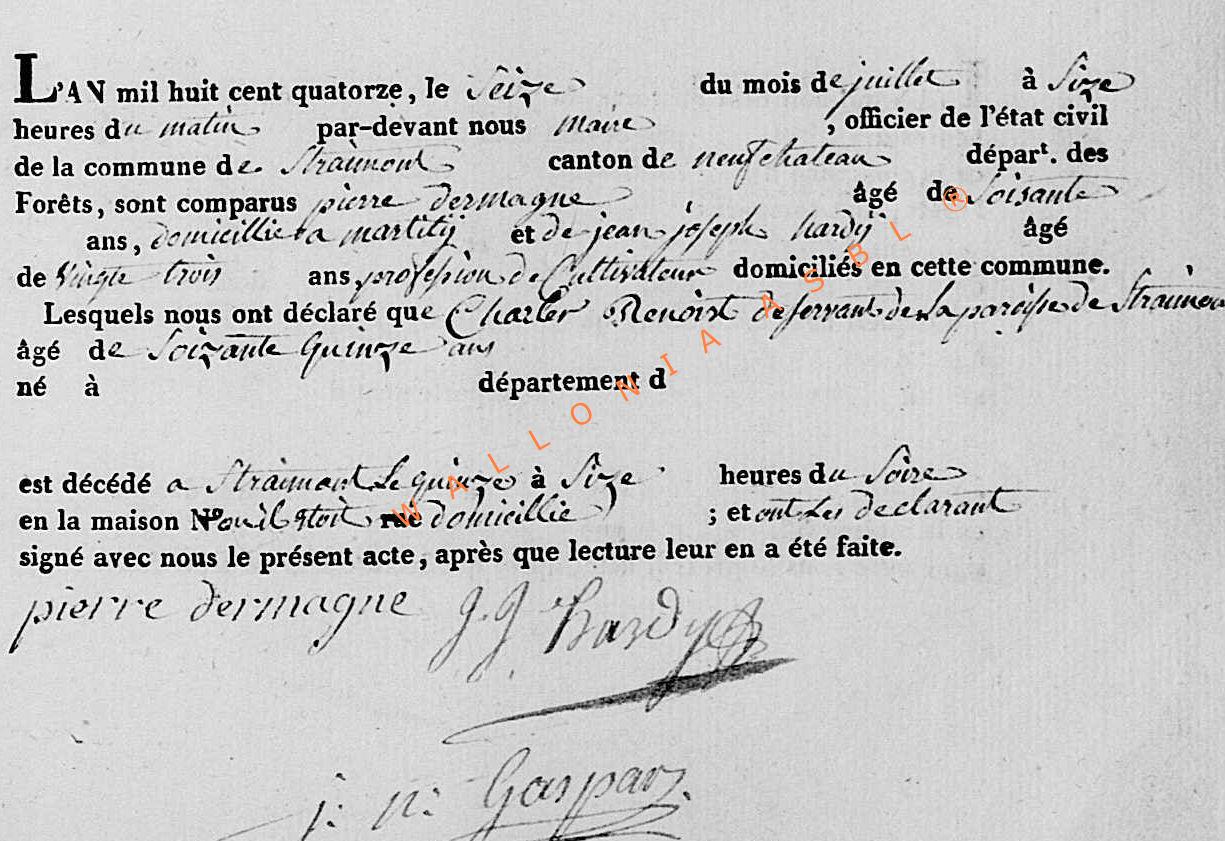 L'AN mil huit cent quatorze, le Seize du mois de juillet à Size
heures du matin par-devant nous maire , officier de l'état civil
de la commune de Straimont canton de neufchateau dépar^t. des
Forêts, sont comparus pierre dermagne âgé de Soisante
ans, domicillié a martilÿ et de jean joseph hardÿ âgé
de Vingte trois ans, profession de Cultivateur domiciliés en cette commune.
Lesquels nous ont déclaré que Charler Renoist deservant de La paroisse de Straimon
âgé de Soizante Quinze ans
né à département d
est décédé a Straimont Le quinze à Size heures du Soire
en la maison N° ou il etoit rue domicillié ; et ont Les declarant
signé avec nous le présent acte, après que lecture leur en a été faite.
pierre dermagne J J hardy
j: n: Gaspar
WALLONIA ASBL ®